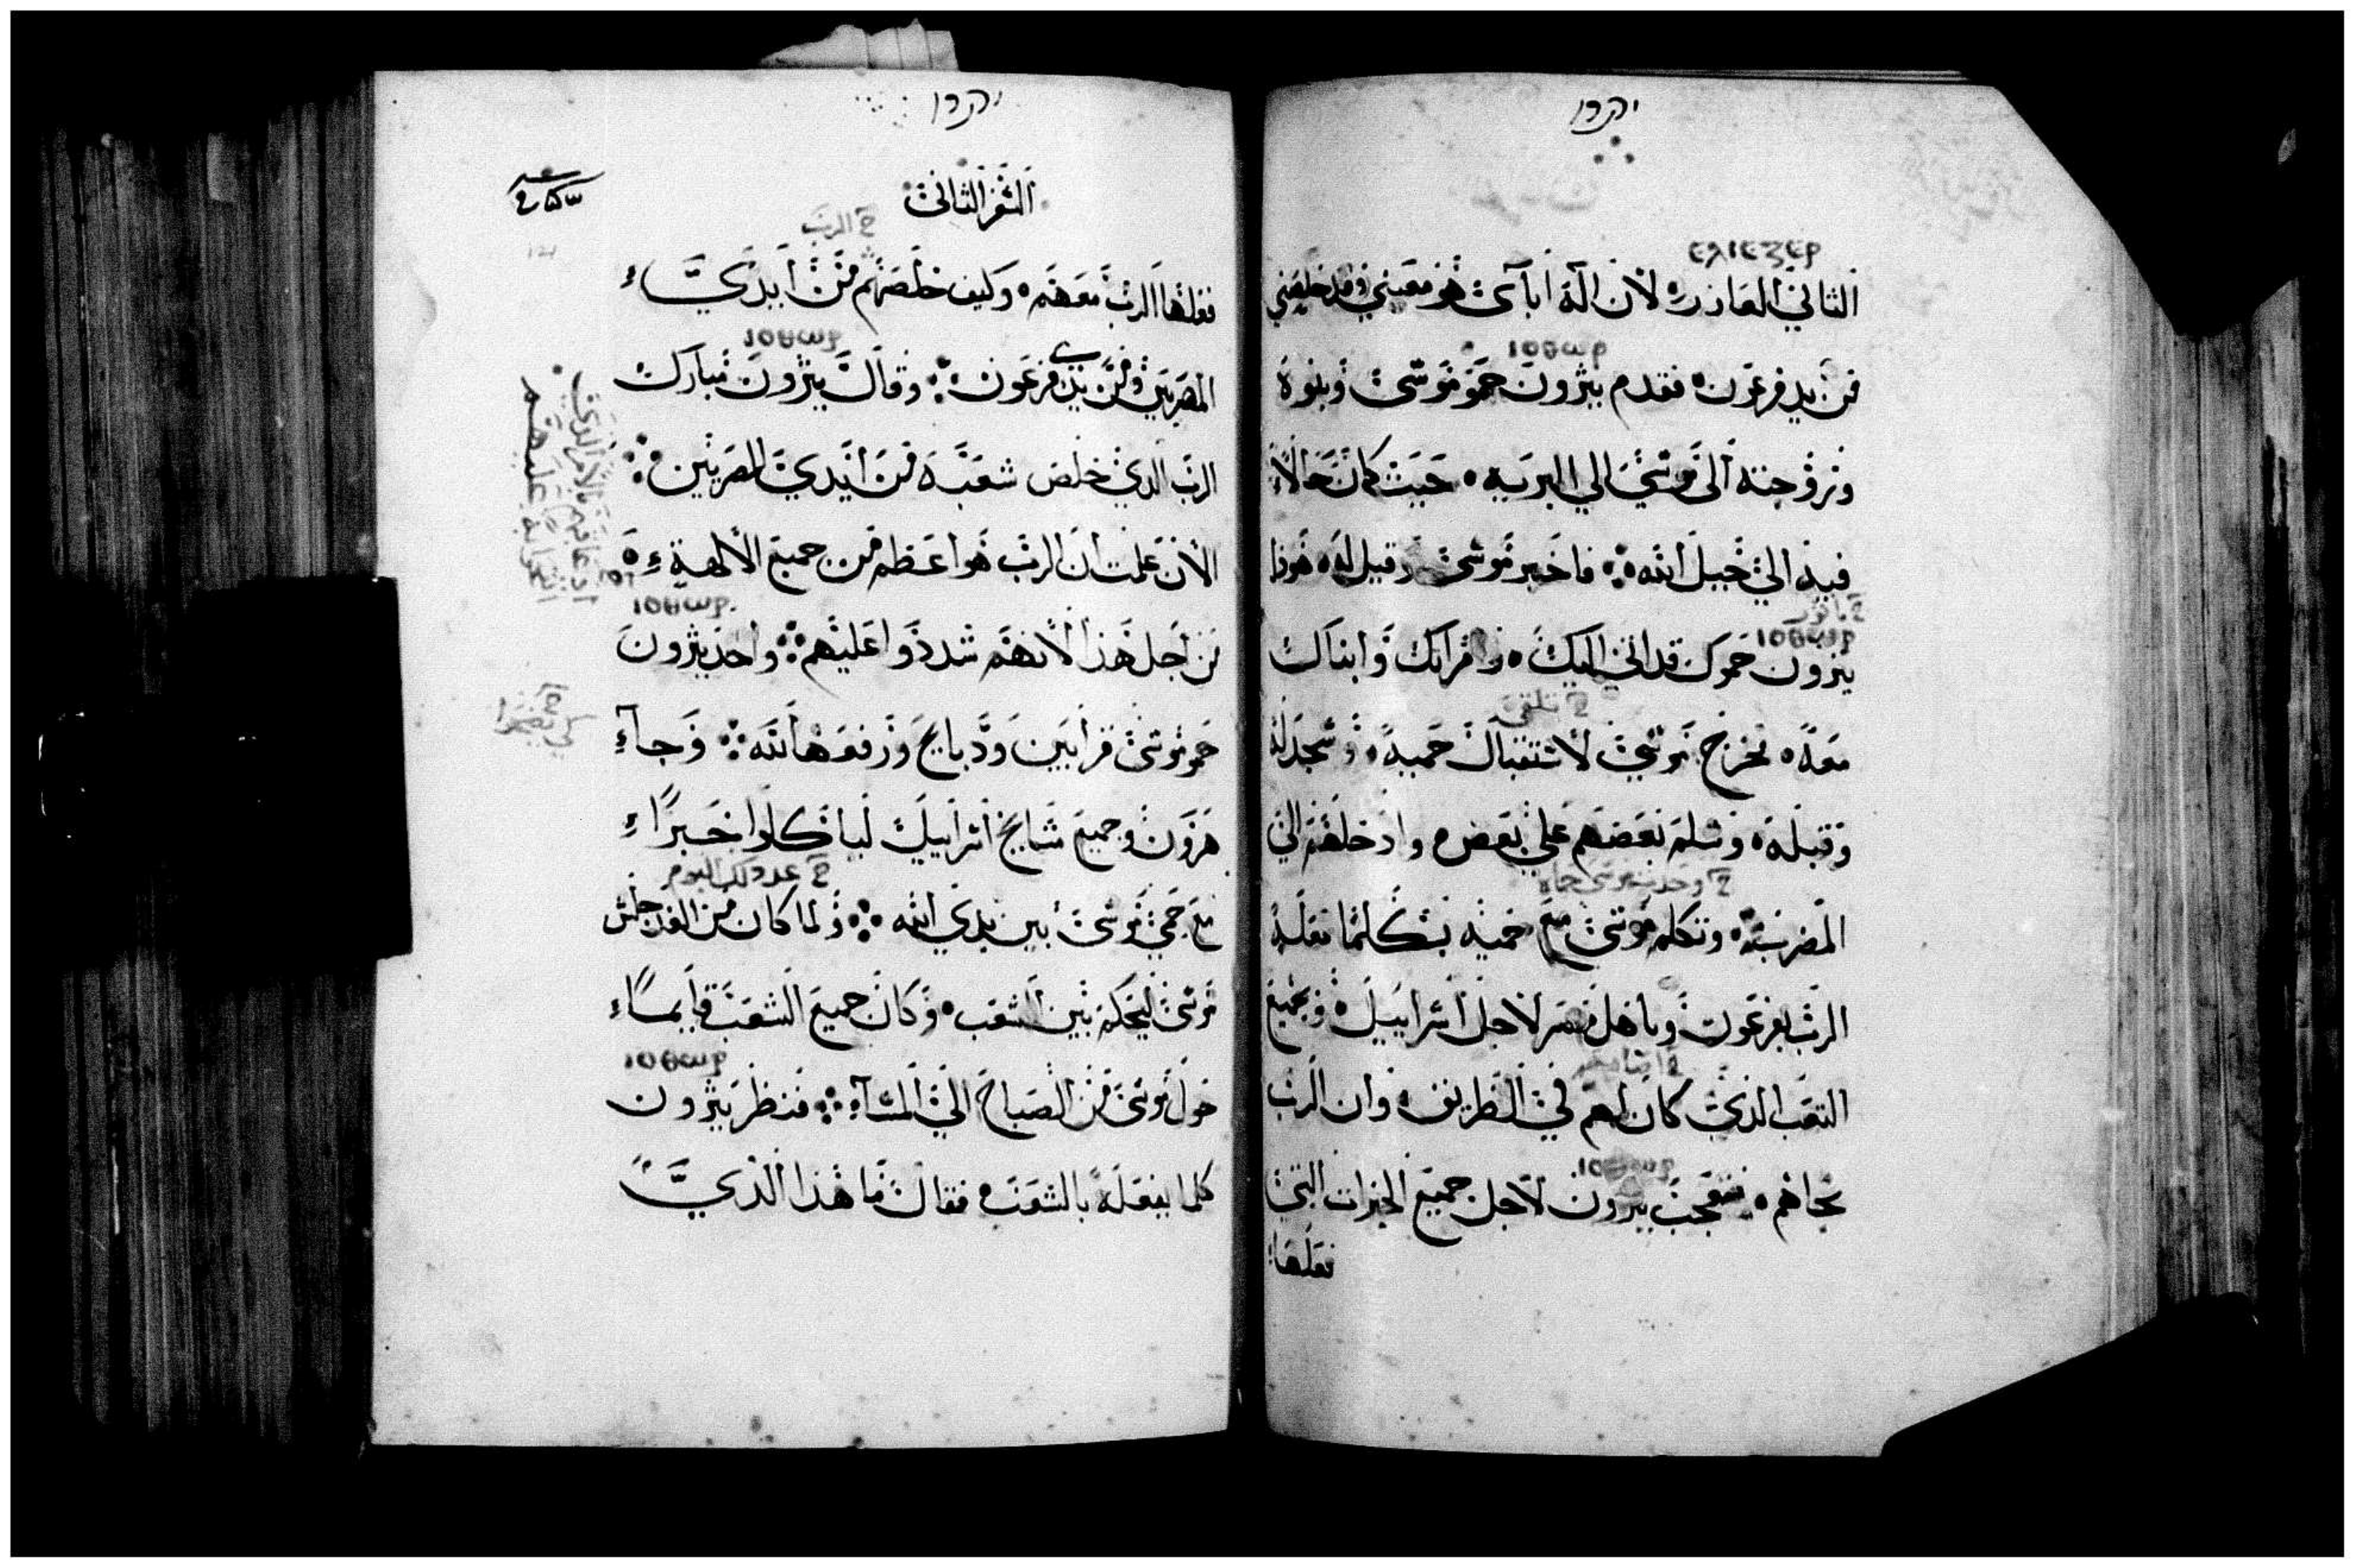 יתרו
ⲉⲗⲓⲉⲍⲉⲣ
الثاني العازر لان اله ابآى هو معيني وقد خلصني
ⲓⲟⲑⲱⲣ
من يد فرعون فقدم يثرون حمو موسى وبنوه
وزوجته الى موسى الي البريه حيث كان حالاً
فيه الى جبل الله فاخبر موسى وقيل له هوذا
ⲓⲟⲑⲱⲣ
يثرون حموك قد اتى اليك وامراتك وابناك
خ تلقى
معه فخرج موسى لاستقبال حميه وسجد له
وقبله وسلم بعضهم على بعض وادخلهم الى
خ وحدث موسى حماه
المضربة وتكلم موسى مع حميه بكلما فعله
الرب بفرعون وباهل مصر لاجل اسراييل وبجميع
التعب الذى كان لهم في الطريق وان الرب
ⲓⲟⲑⲱⲣ
نجاهم فتعجب يثرون لاجل جميع الخيرات التى
فعلها
יתרו
السفر الثانى
خ الرب
فعلها الرب معهم وكيف خلصهم من أيدي
ⲓⲟⲑⲱⲣ
المصريين ومن يدى فرعون وقال يثرون مبارك
الرب الذي خلص شعبه من أيدي المصريين
الآن علمت أن الرب هو أعظم من جميع الألهة
ⲓⲟⲑⲱⲣ
من أجل هذا لانهم شددوا عليهم وأخذ يثرون
حمو موسى قرابين ودبايح ورفعها لله وجاء
هرون وجميع مشايخ اسراييل ليأكلوا خبزاً
خ غد ذلك اليوم
مع حمى موسى بين يدي الله ولما كان من الغد جلس
موسى ليحكم بين الشعب وكان جميع الشعب قايماً
ⲓⲟⲑⲱⲣ
حول موسى من الصباح الى المساء فنظر يثرون
كلما يفعله بالشعب فقال ما هذا الذي